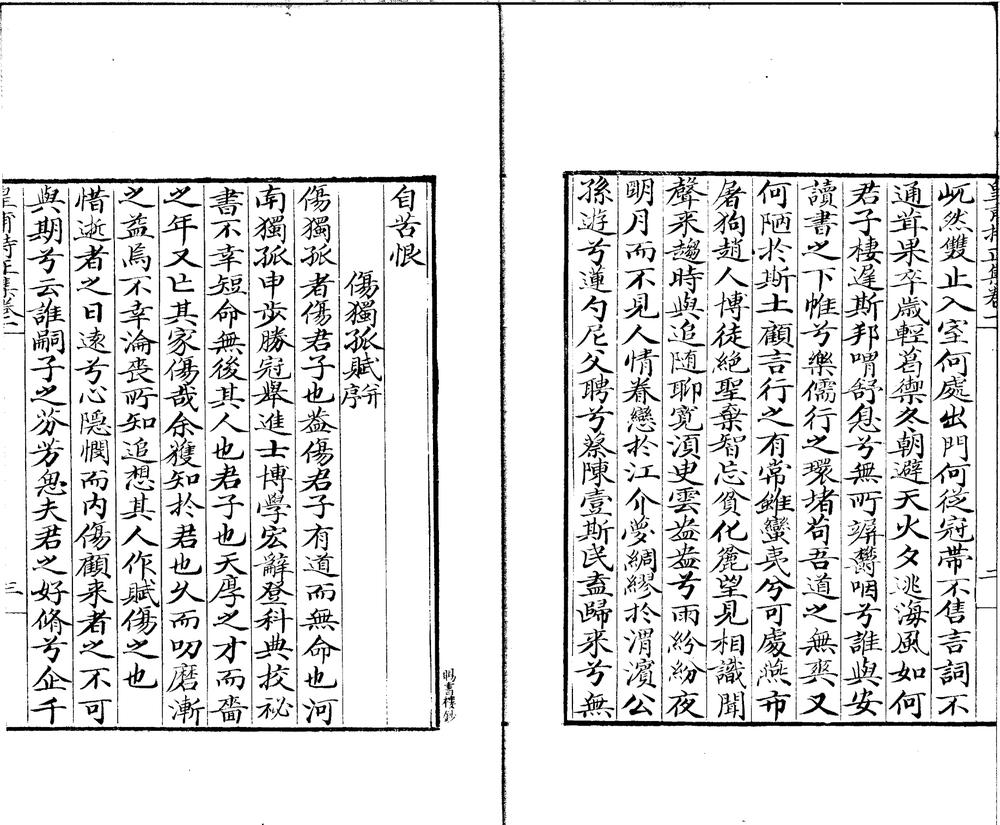 屼然雙止入室何處出門何從冠帶不售言詞不
通茸果卒歲輕葛禦冬朝避天火夕逃海風如何
君子棲遲斯邦喟舒息兮無所竮欝咽兮誰與安
讀書之下帷兮樂儒行之環堵苟吾道之無爽又
何陋於斯土顧言行之有常雖蠻夷兮可處燕市
屠狗趙人博徒絕聖棄智忘貧化麄望見相識聞
聲来趨時與追随聊寛湏史雲㿽㿽兮雨紛紛夜
明月而不見人情眷戀於江介夢綢繆於渭濱公
孫遊兮蓮勺尼父聘兮蔡陳壹斯民盍歸来兮無
自苦恨
傷獨孤賦并序
傷獨孤者傷君子也盖傷君子有道而無命也河
南獨孤申步勝冠舉進士博學宏辭登科典挍祕
書不幸短命無後其人也君子也天厚之才而嗇
之年又亡其家傷哉余獲知於君也久而叨磨漸
之益焉不幸淪喪所知追想其人作賦傷之也
惜逝者之日遠兮心隱憫而内傷顧来者之不可
與期兮云誰嗣子之芬芳思夫君之好脩兮企千
三
鴨書樓鈔